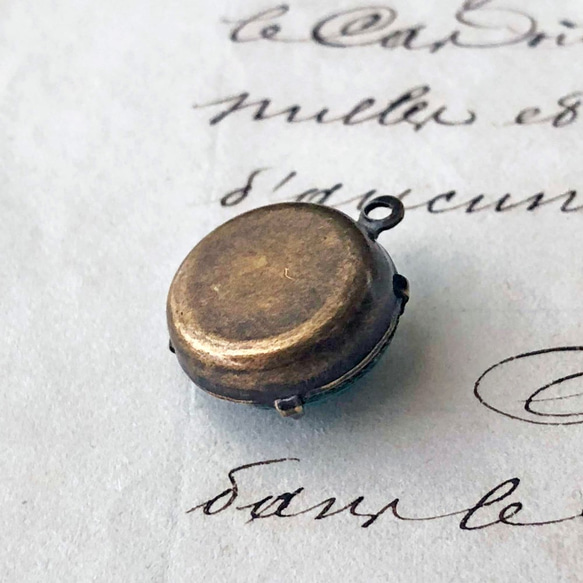 le Cardi
nuller et
d'aucun
dans le